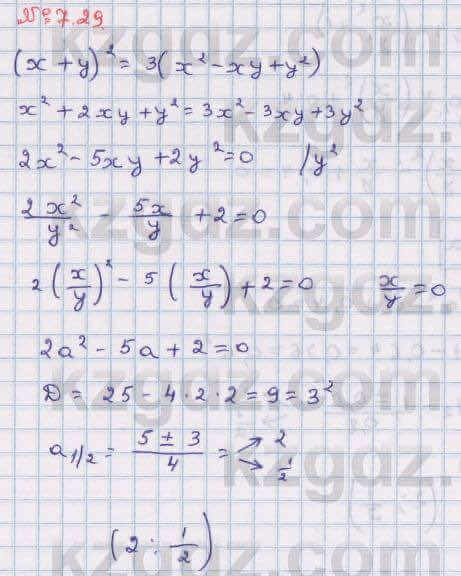 № 7.29
(x + y)² = 3(x² - xy + y²)
x² + 2xy + y² = 3x² - 3xy + 3y²
2x² - 5xy + 2y² = 0 /y²
2x²/y² - 5x/y + 2 = 0
2(x/y)² - 5(x/y) + 2 = 0 x/y = 0
2a² - 5a + 2 = 0
D = 25 - 4·2·2 = 9 = 3²
a₁/₂ = (5 ± 3)/4 = ↗ 2 ↘ 1/2
(2 ; 1/2)
kzgdz.